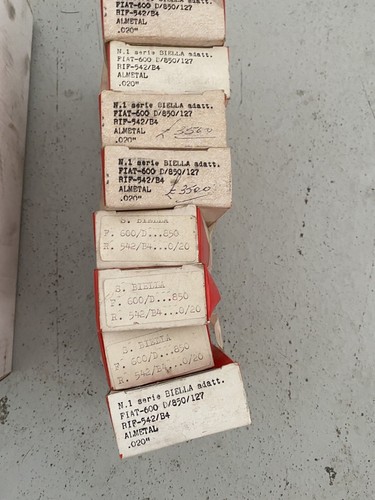 N.1 serie BIELLA adatt.
FIAT-600 D/850/127
RIF-542/B4
ALMETAL
.020"
N.1 serie BIELLA adatt.
FIAT-600 D/850/127
RIF-542/B4
ALMETAL
.020"
N.1 serie BIELLA adatt.
FIAT-600 D/850/127
RIF-542/B4
ALMETAL £ 3500
.020"
N.1 serie BIELLA adatt.
FIAT-600 D/850/127
RIF-542/B4
ALMETAL £ 3500
.020"
S. BIELLA
F. 600/D...850
R. 542/B4...0/20
S. BIELLA
F. 600/D...850
R. 542/B4...0/20
S. BIELLA
F. 600/D...850
R. 542/B4...0/20
N.1 serie BIELLA adatt.
FIAT-600 D/850/127
RIF-542/B4
ALMETAL
.020"